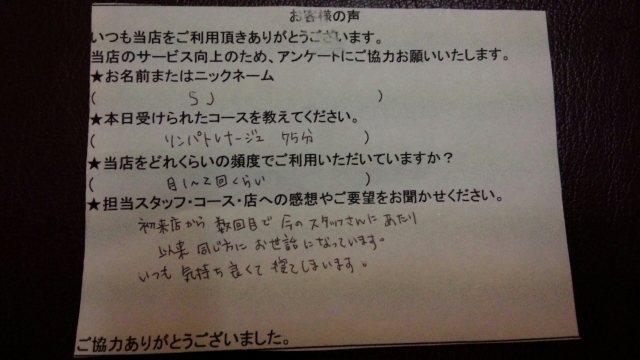 お客様の声
いつも当店をご利用頂きありがとうございます。
当店のサービス向上のため、アンケートにご協力お願いいたします。
★お名前またはニックネーム
( SJ )
★本日受けられたコースを教えてください。
( リンパドレナージュ 75分 )
★当店をどれくらいの頻度でご利用いただいていますか？
( 月1〜2回くらい )
★担当スタッフ・コース・店への感想やご要望をお聞かせください。
初来店から 数回目で 今の スタッフさんに あたり
以来 同じ方に お世話になっています。
いつも 気持ち良くて 寝てしまいます。
ご協力ありがとうございました。